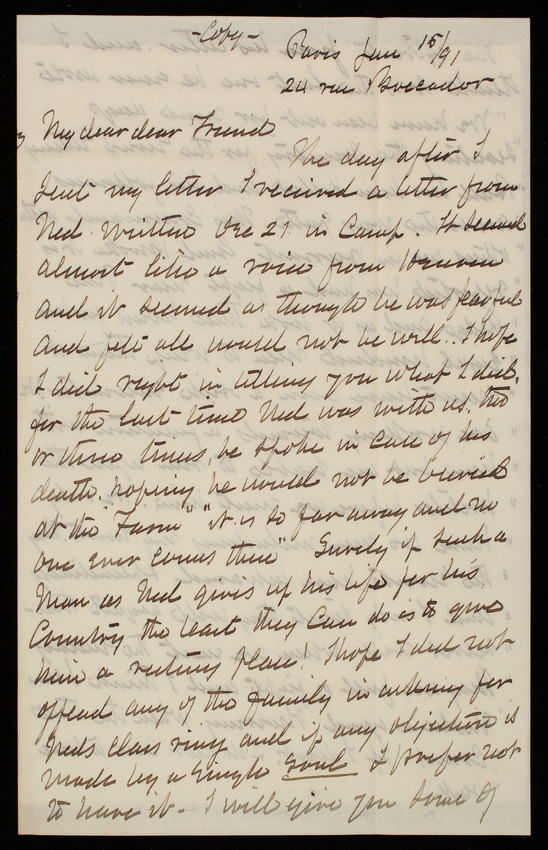 -Copy-
Paris Jan 15/91
24 rue Boccador
My dear dear Friend
The day after I
sent my letter I received a letter from
Ned. Written Dec 21 in Camp. It seemed
almost like a voice from Heaven
and it seemed as though he was fearful
and felt all would not be well.. I hope
I did right in telling you what I did.
for the last time Ned was with us, two
or three times, he spoke in case of his
death, hoping he would not be buried
at the "Farm" "it is so far away and no
one ever comes there" Surely if such a
Man as Ned gives up his life for his
Country the least they can do is to give
him a resting place! I hope I did not
offend any of the family in asking for
Neds class ring and if any objection is
made by a single soul I prefer not
to have it - I will give you some of